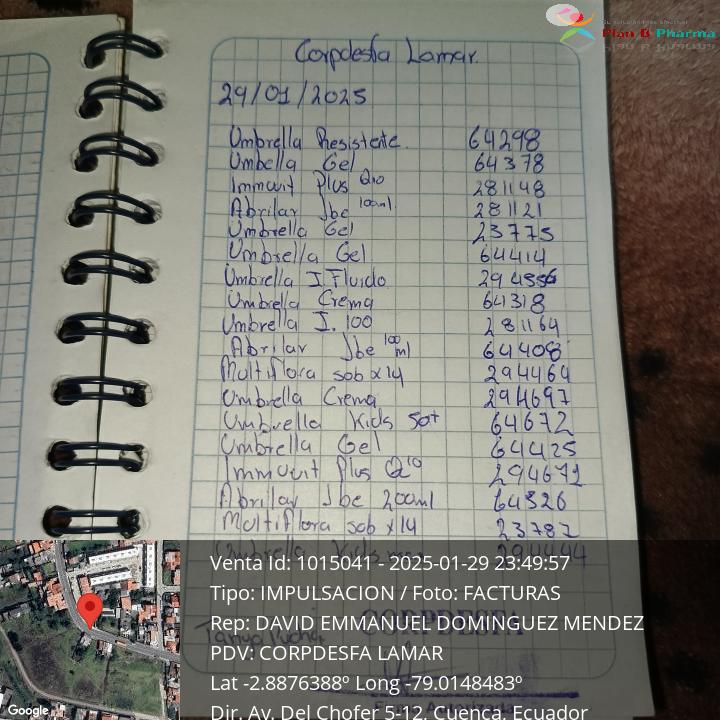 Plan B Pharma
Corpdesfa Lamar.
29/01/2025
Umbrella Resistente. 64298
Umbella Gel 64378
Immuvit Plus Q10 281148
Abrilar Jbe 100ml. 281121
Umbrella Gel 23775
Umbrella Gel 64414
Umbrella I. Fluido
Umbrella Crema 64318
Umbrella I. 100 281164
Abrilar Jbe 100 ml 64408
Multiflora sob x14 294464
Umbrella Crema 294697
Umbrella Kids 50+ 64672
Umbrella Gel 64425
Immuvit Plus Q10 294671
Abrilar Jbe 200ml 64326
Multiflora sob x14 23782
Umbrella Kids 294444
CORPDESFA
Venta Id: 1015041 - 2025-01-29 23:49:57
Tipo: IMPULSACION / Foto: FACTURAS
Rep: DAVID EMMANUEL DOMINGUEZ MENDEZ
PDV: CORPDESFA LAMAR
Lat -2.8876388º Long -79.0148483º
Dir. Av. Del Chofer 5-12, Cuenca, Ecuador
Google